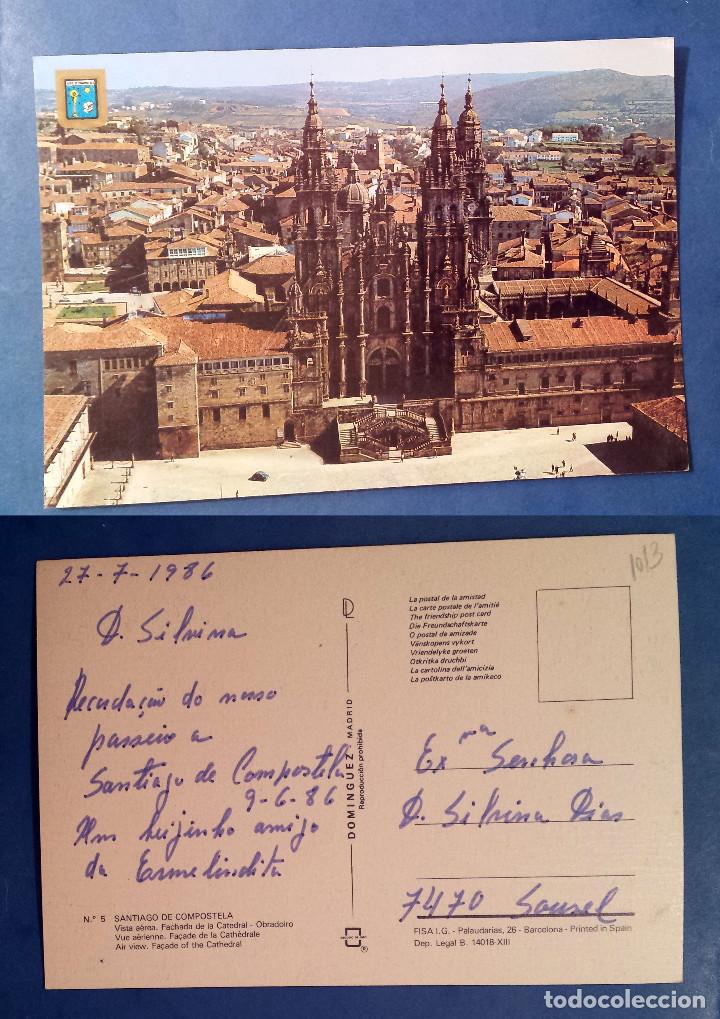 27-7-1986
D. Silvina
Recordação do nosso
passeio a
Santiago de Compostela
9-6-86
Um beijinho amigo
da Ermelindita
N.° 5 SANTIAGO DE COMPOSTELA
Vista aérea. Fachada de la Catedral - Obradoiro
Vue aérienne. Façade de la Cathédrale
Air view. Façade of the Cathedral
DOMINGUEZ MADRID
Reproducción prohibida
®
1013
La postal de la amistad
La carte postale de l'amitié
The friendship post card
Die Freundschaftskarte
O postal de amizade
Vänskopens vykort
Vriendelyke groeten
Otkritka druchbi
La cartolina dell'amicizia
La poŝtkarto de la amikeco
Exma Senhora
D. Silvina Dias
7470 Sousel
FISA I.G. - Palaudarias, 26 - Barcelona - Printed in Spain
Dep. Legal B. 14018-XIII
todocoleccion.net